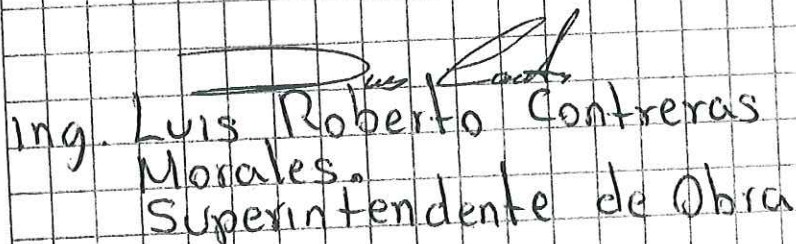 Ing. Luis Roberto Contreras
Morales.
Superintendente de Obra